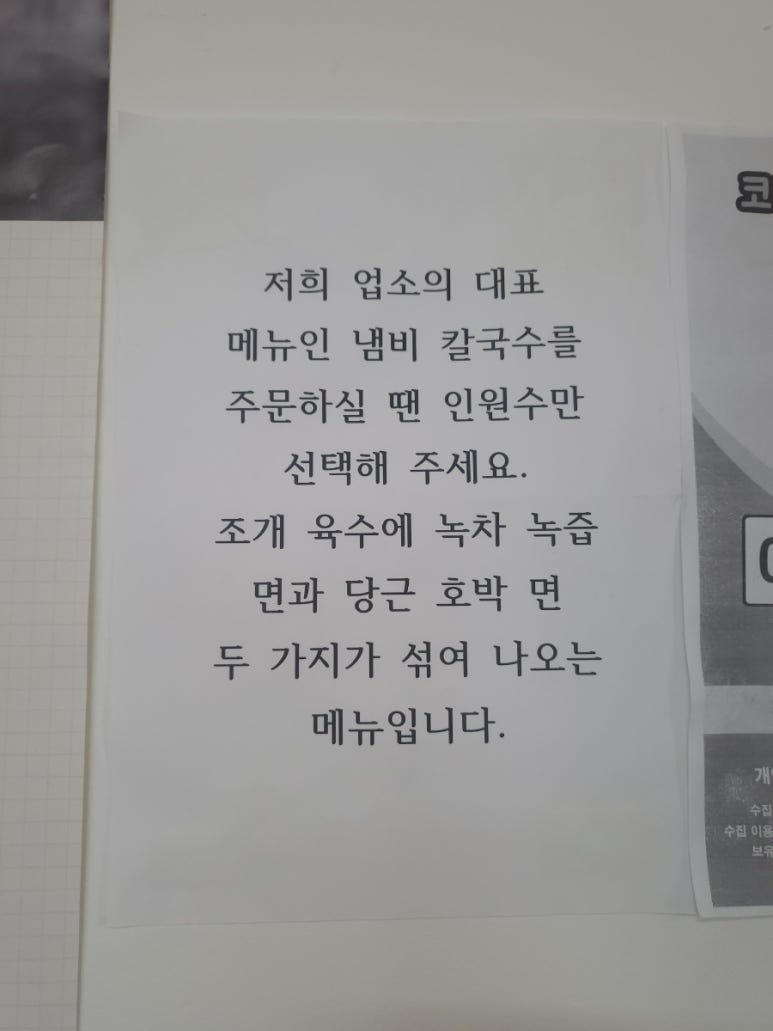 저희 업소의 대표
메뉴인 냄비 칼국수를
주문하실 땐 인원수만
선택해 주세요.
조개 육수에 녹차 녹즙
면과 당근 호박 면
두 가지가 섞여 나오는
메뉴입니다.
코
개
수집
수집 이용
보유